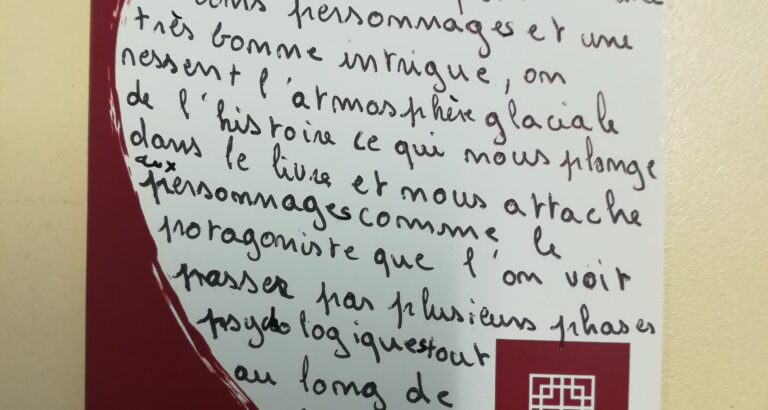 personnages et une
très bonne intrigue, on
ressent l'atmosphère glaciale
de l'histoire ce qui nous plonge
dans le livre et nous attache
aux
personnages comme le
protagoniste que l'on voit
passer par plusieurs phases
psychologiques tout
au long de